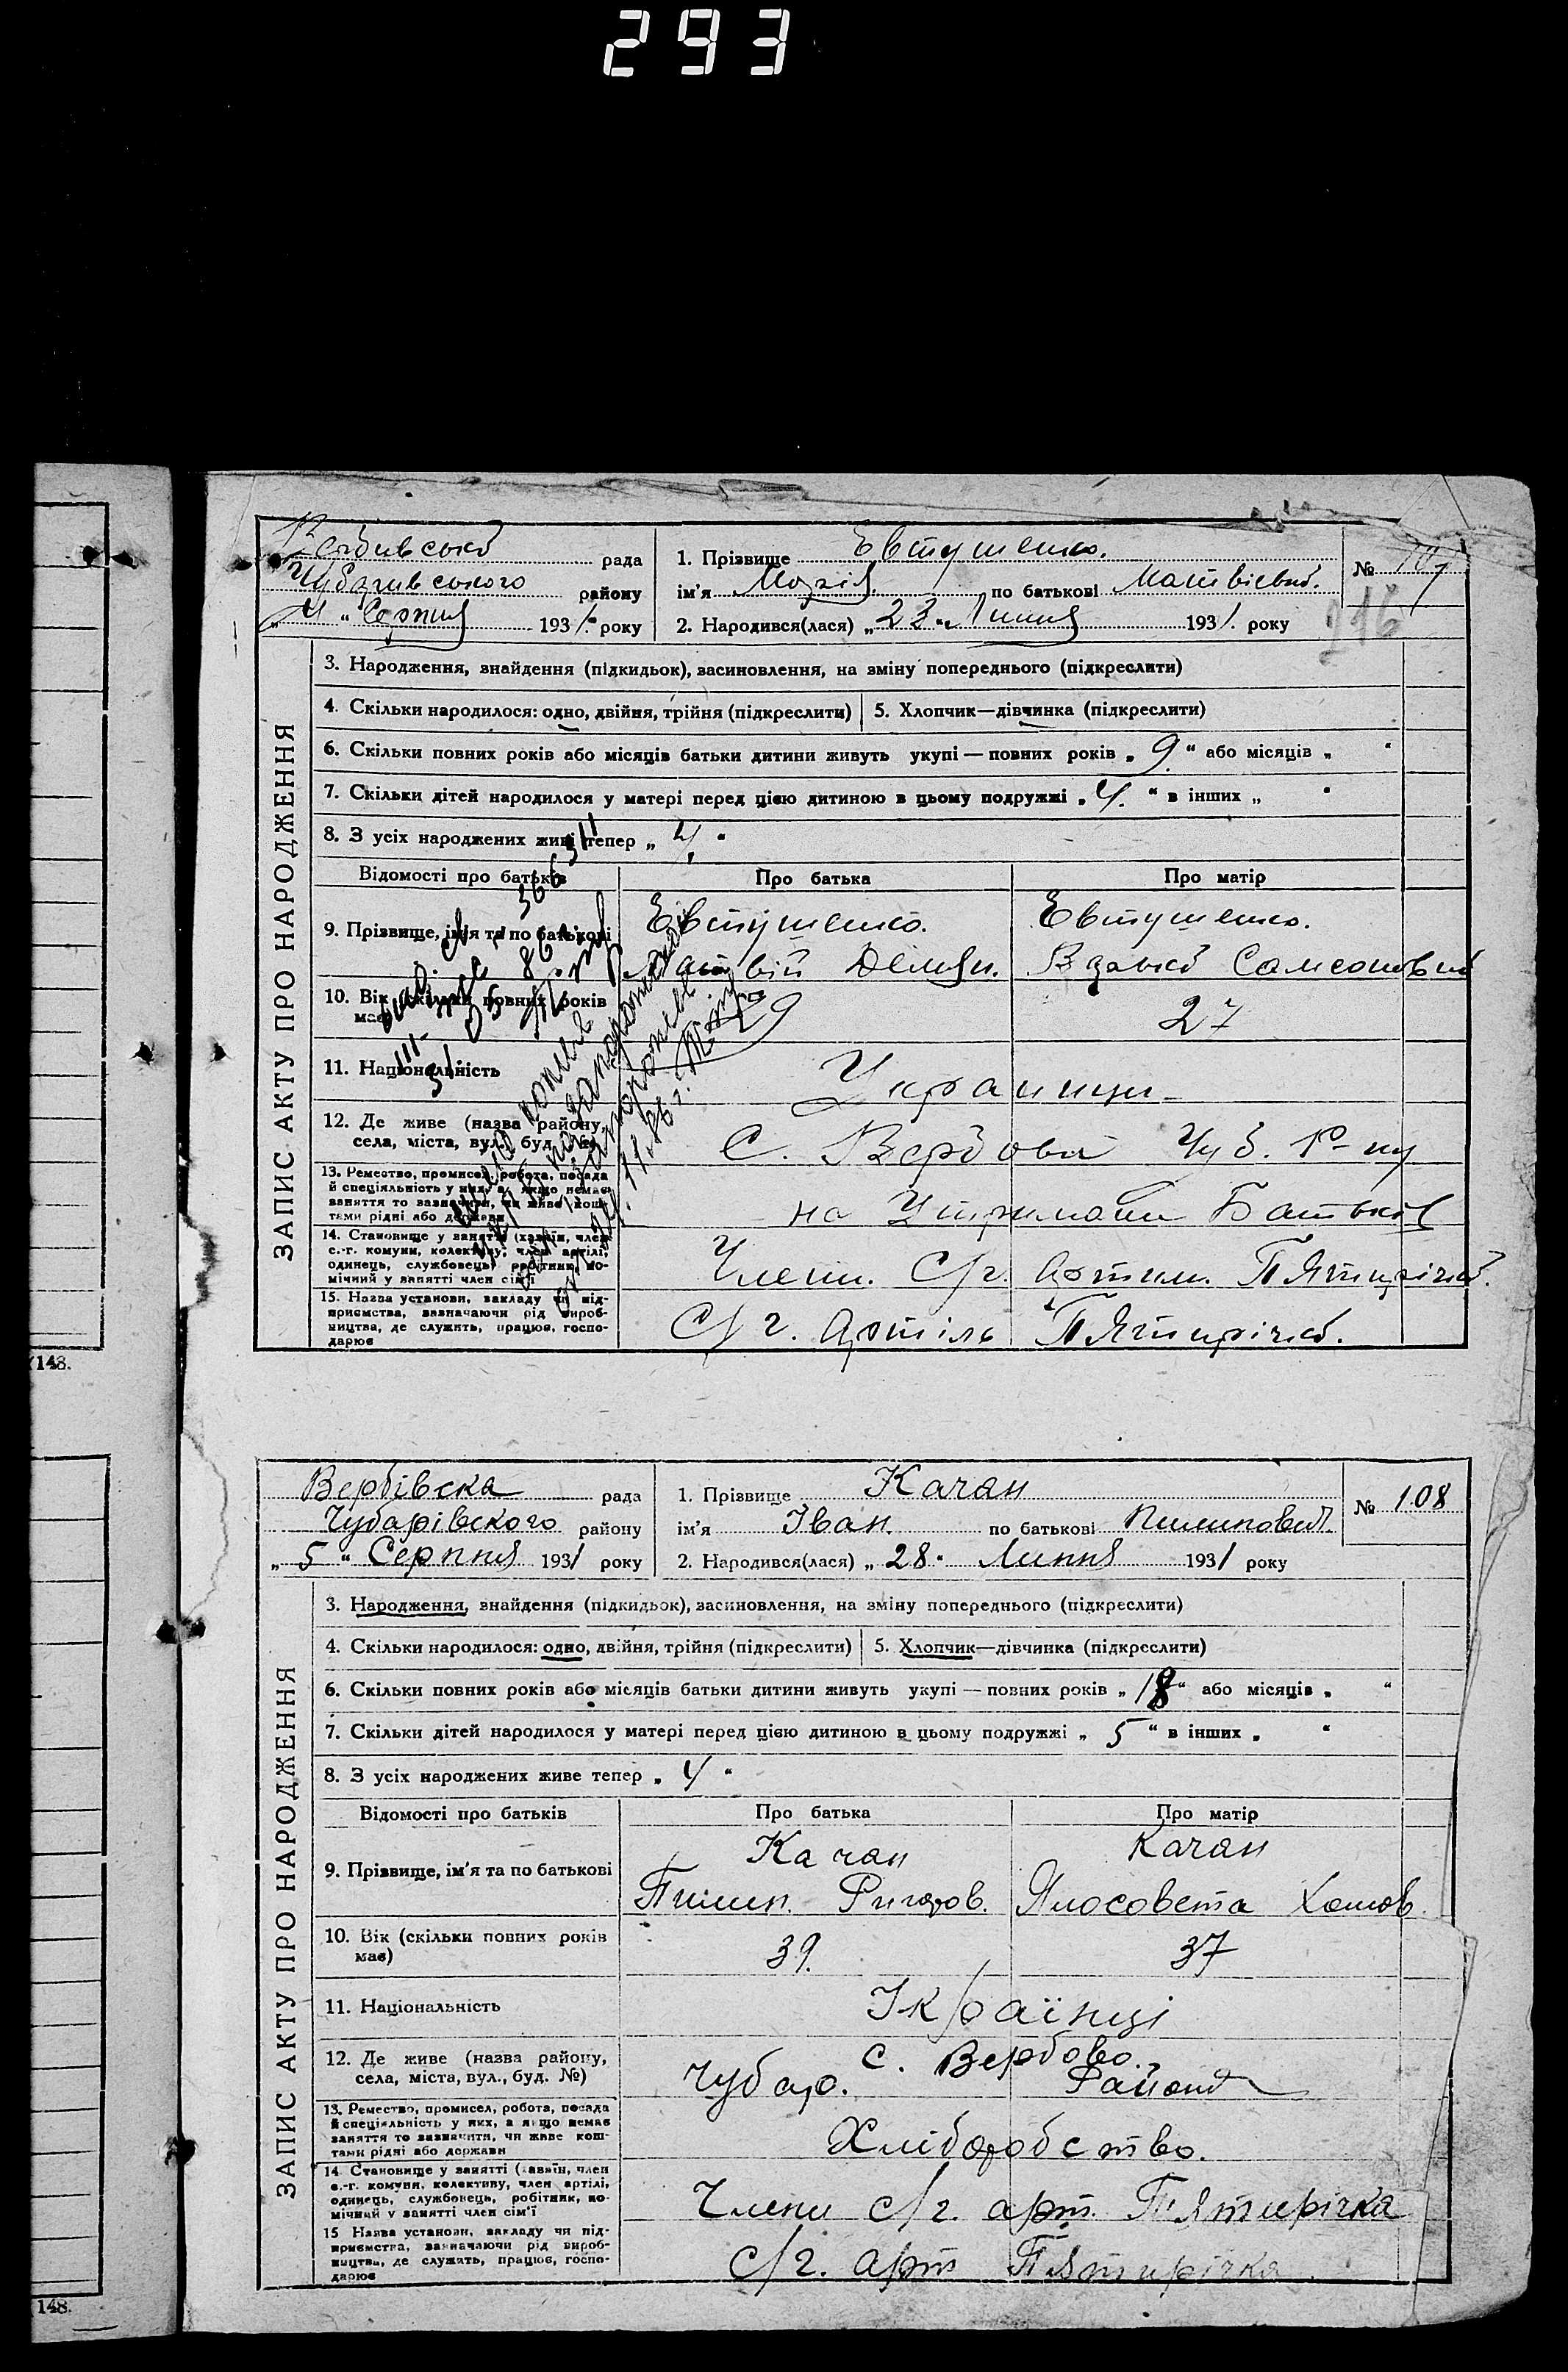 293
Вербивської рада
Чубарив ського району
" 4 " Серпня 1931 року
1. Прізвище Евтушенко.
ім'я Марія. по батькові Матвієвна.
2. Народився(лася) „ 23 " Липня 1931. року
№ 107
116
ЗАПИС АКТУ ПРО НАРОДЖЕННЯ
3. Народження, знайдення (підкидьок), засиновлення, на зміну попереднього (підкреслити)
4. Скільки народилося: одно, двійня, трійня (підкреслити) 5. Хлопчик—дівчинка (підкреслити)
6. Скільки повних років або місяців батьки дитини живуть укупі — повних років „ 9. " або місяців „ "
7. Скільки дітей народилося у матері перед цією дитиною в цьому подружжі „ 4. " в інших „ "
8. З усіх народжених живі тепер „ 4. "
Відомості про батьків Про батька Про матір
9. Прізвище, ім'я та по батькові Евтушенко. Евтушенко.
Матвій Демян. Самсоновна
10. Вік (скільки повних років має) 29 27
11. Національність Украинци
12. Де живе (назва району, села, міста, вул., буд. №) С. Вербова Чуб. Р-ну
13. Ремество, промисел, робота, посада й спеціяльність у них, а якщо немає заняття то зазначити, чи живе коштами рідні або держави на Утримані Батьків
14. Становище у занятті (хазяїн, член с.-г. комуни, колективу, член артілі, одинець, службовець, робітник, помічний у занятті член сім'ї Члени. С/г. Артили. ПЯтирічка.
15. Назва установи, закладу чи підприємства, зазначаючи рід виробництва, де служить, працює, господарює С/г. Артіль ПЯтирічка.
148.
Вербівска рада
Чубарівского району
„ 5 " Серпня 1931 року
1. Прізвище Качан
ім'я Іван. по батькові Пилипович.
2. Народився(лася) „ 28 " Липня 1931 року
№ 108
ЗАПИС АКТУ ПРО НАРОДЖЕННЯ
3. Народження, знайдення (підкидьок), засиновлення, на зміну попереднього (підкреслити)
4. Скільки народилося: одно, двійня, трійня (підкреслити) 5. Хлопчик—дівчинка (підкреслити)
6. Скільки повних років або місяців батьки дитини живуть укупі — повних років „ 18 " або місяців „ "
7. Скільки дітей народилося у матері перед цією дитиною в цьому подружжі „ 5 " в інших „ "
8. З усіх народжених живе тепер „ 4 "
Відомості про батьків Про батька Про матір
9. Прізвище, ім'я та по батькові Качан Качан
Пилип. Ригоров. Ялосовета Хомов.
10. Вік (скільки повних років має) 39. 37
11. Національність Українці
12. Де живе (назва району, села, міста, вул., буд. №) с. Вербово.
Чубар. Району
13. Ремество, промисел, робота, посада й спеціяльність у них, а якщо немає заняття то зазначити, чи живе коштами рідні або держави Хліборобство.
14 Становище у занятті (хазяїн, член с.-г. комуни, колективу, член артілі, одинець, службовець, робітник, помічний у занятті член сім'ї Члени с/г. арт. ПЯтирічка
15 Назва установи, закладу чи підприємства, зазначаючи рід виробництва, де служить, працює, господарює с/г. арт ПЯтирічка.
148.